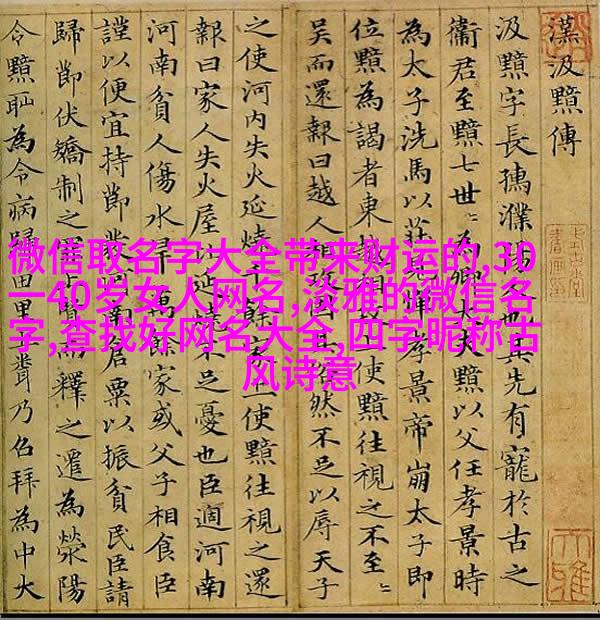 微信取名字大全带来财运的,30
一40岁女人网名,淡雅的微信名
字,查找好网名大全,四字昵称古
风诗意
漢汲黯傳
汲黯字長孺濮陽也其先有寵於古之
衞君至黯七世〻卿大夫黯以父任孝景時
為太子洗馬以莊見憚孝景帝崩太子即
位黯為謁者東越相使黯往視之不至〻
吳而還報曰越人相攻然不足以辱天子
之使河内失火延燒千餘家上使黯往視之還
報曰家人失火屋比延不足憂也臣過河南
河南貧人傷水旱萬餘家或父子相食臣
謹以便宜持節發河南倉粟以振貧民臣請
歸節伏矯制之釋之遷為滎陽
令黯恥為令病歸田里乃召拜為中大